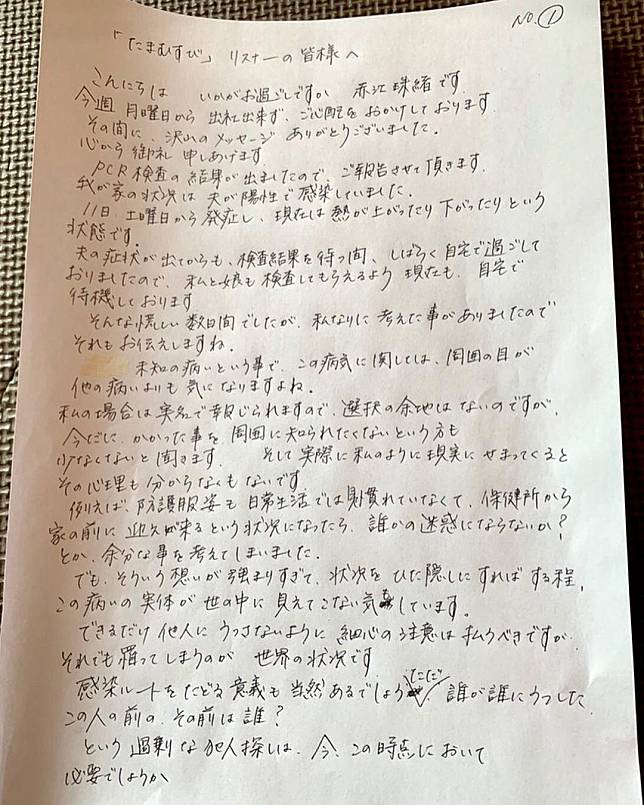 NO.①
「たまむすび」 リスナーの皆様へ
こんにちは いかがお過ごしですか 赤江珠緒です
今週 月曜日から 出社出来ず、ご心配を おかけしております
その間に、沢山のメッセージ ありがとうございました。
心から 御礼 申しあげます
PCR検査の結果が出ましたので、ご報告させて頂きます。
我が家の状況は 夫が陽性で感染していました。
11日 土曜日から 発症し、現在は 熱が上がったり 下がったりという
状態です。
夫の症状が出てからも、検査結果を待つ間、しばらく自宅で過ごして
おりましたので、私と娘も検査してもらえるよう 現在も、自宅で
待機しております
そんな慌しい 数日間でしたが、私なりに 考えた事がありましたので
それも お伝えしますね。
未知の病いという事で、この病気に関しては、周囲の目が
他の病いよりも 気になりますよね。
私の場合は実名で報じられますので、選択の余地は ないのですが、
今だに、かかった事を 周囲に知られたくないという 方も
少なくないと聞きます。 そして 実際に 私のように 現実に せまってくると
その心理も分からなくも ないです。
例えば、防護服姿も 日常生活では見慣れていなくて、保健所から
家の前に 迎えが来るという状況になったら、誰かの迷惑にならないか?
とか、余分な事を考えてしまいました。
でも、そういう想いが 強まりすぎて、状況を ひた隠しに すれば する程、
この病いの実体が 世の中に 見えてこない気がしています。
できるだけ 他人に うつさないように 細心の注意は 払うべきですが、
それでも罹ってしまうのが 世界の状況です
感染ルートを たどる 意義も 当然あるでしょう ただただ 誰が誰にうつした
この人の前の、その前は誰?
という 過剰な 犯人探しは、今、この時点において
必要でしょうか